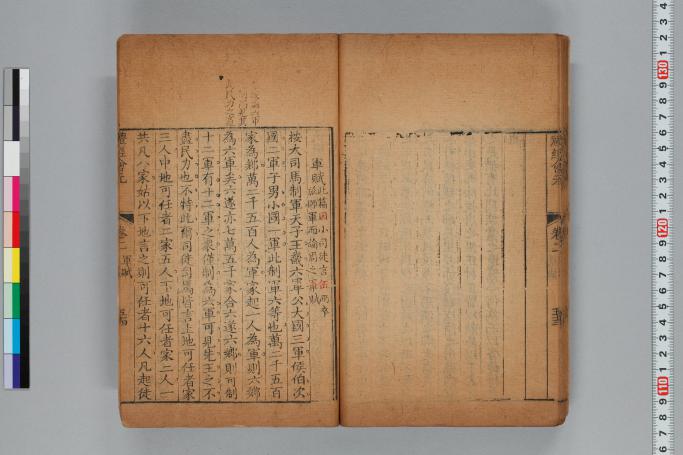 軍賦
此篇因小司徒言伍兩卒
旅師軍而論周之軍賦
按大司馬制軍天子王畿六軍公大國三軍侯伯次
國二軍子男小國一軍此制軍六等也萬二千五百
家為鄉萬二千五百人為軍家起一人為軍則六鄉
為六軍矣六遂亦七萬五千家合六遂六鄉則可制
十二軍有十二軍之衆僅制為六軍可見先王之不
盡民力也不特此爾司徒司馬皆言上地可任者家
三人中地可任者二家五人下地可任者家二人一
共凡八家姑以下地言之則可任者十六人凡起徒
禮經會元
卷二
軍賦
禮經會元
卷二